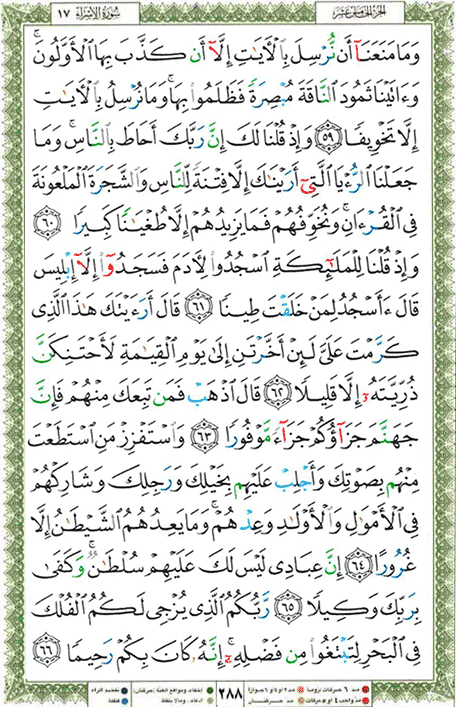 سُورَةُ الإِسْرَاءِ ١٧
الجزء الخامس عشر
وَمَا مَنَعَنَآ أَن نُّرْسِلَ بِٱلْأَيَٰتِ إِلَّآ أَن كَذَّبَ بِهَا ٱلْأَوَّلُونَۚ
وَءَاتَيْنَا ثَمُودَ ٱلنَّاقَةَ مُبْصِرَةً فَظَلَمُوا۟ بِهَاۚ وَمَا نُرْسِلُ بِٱلْأَيَٰتِ
إِلَّا تَخْوِيفًا ٥٩ وَإِذْ قُلْنَا لَكَ إِنَّ رَبَّكَ أَحَاطَ بِٱلنَّاسِۚ وَمَا
جَعَلْنَا ٱلرُّءْيَا ٱلَّتِىٓ أَرَيْنَٰكَ إِلَّا فِتْنَةً لِّلنَّاسِ وَٱلشَّجَرَةَ ٱلْمَلْعُونَةَ
فِى ٱلْقُرْءَانِۚ وَنُخَوِّفُهُمْ فَمَا يَزِيدُهُمْ إِلَّا طُغْيَٰنًا كَبِيرًا ٦٠
وَإِذْ قُلْنَا لِلْمَلَٰٓئِكَةِ ٱسْجُدُوا۟ لِأَدَمَ فَسَجَدُوٓا۟ إِلَّآ إِبْلِيسَ
قَالَ ءَأَسْجُدُ لِمَنْ خَلَقْتَ طِينًا ٦١ قَالَ أَرَءَيْتَكَ هَٰذَا ٱلَّذِى
كَرَّمْتَ عَلَىَّ لَئِنْ أَخَّرْتَنِ إِلَىٰ يَوْمِ ٱلْقِيَٰمَةِ لَأَحْتَنِكَنَّ
ذُرِّيَّتَهُۥٓ إِلَّا قَلِيلًا ٦٢ قَالَ ٱذْهَبْ فَمَن تَبِعَكَ مِنْهُمْ فَإِنَّ
جَهَنَّمَ جَزَآؤُكُمْ جَزَآءً مَّوْفُورًا ٦٣ وَٱسْتَفْزِزْ مَنِ ٱسْتَطَعْتَ
مِنْهُم بِصَوْتِكَ وَأَجْلِبْ عَلَيْهِم بِخَيْلِكَ وَرَجِلِكَ وَشَارِكْهُمْ
فِى ٱلْأَمْوَٰلِ وَٱلْأَوْلَٰدِ وَعِدْهُمْۚ وَمَا يَعِدُهُمُ ٱلشَّيْطَٰنُ إِلَّا
غُرُورًا ٦٤ إِنَّ عِبَادِى لَيْسَ لَكَ عَلَيْهِمْ سُلْطَٰنٌۚ وَكَفَىٰ
بِرَبِّكَ وَكِيلًا ٦٥ رَّبُّكُمُ ٱلَّذِى يُزْجِى لَكُمُ ٱلْفُلْكَ
فِى ٱلْبَحْرِ لِتَبْتَغُوا۟ مِن فَضْلِهِۦٓۚ إِنَّهُۥ كَانَ بِكُمْ رَحِيمًا ٦٦
مد ٦ حركات لزوماً
٢٨٨
تفخيم الراء
قلقلة